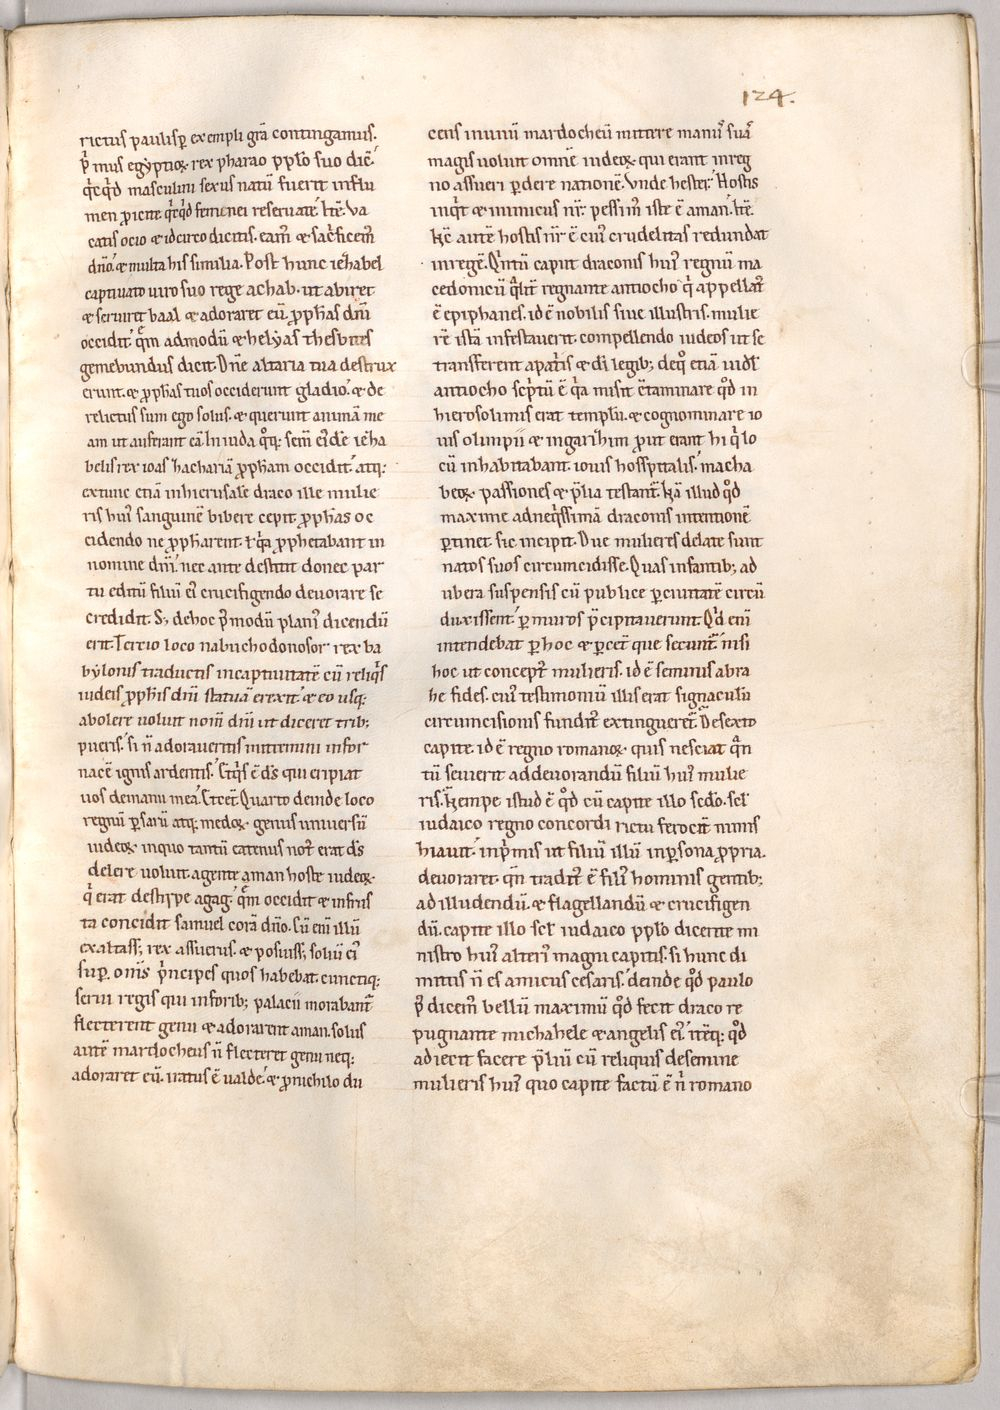 124.
rictus paulisꝑ exempli gr̃a contingamus.
P̾mus egyptioꝝ rex pharao pp̄lo suo dic̄.
q̇cq̇d masculini sexus natū fuerit in flu
men ꝓicite. q̇cq̇d feminei reseruate. Itē. Va
catis ocio ⁊ idcirco dicitis. eam᷒ ⁊ sac̾ficem᷒
dn̄o. ⁊ multa his similia. Post hunc iezhabel
captiuato uiro suo rege achab. ut abiret
⁊ seruiret baal ⁊ adoraret eū. ꝓph̄as dn̄i
occidit. q̄m admodū ⁊ helyas thesbites
gemebundus dicit. Dn̄e altaria tua destrux
erunt. ⁊ ꝓph̄as tuos occiderunt gladio. ⁊ de
relictus sum ego solus. ⁊ querunt animā me
am ut auferant eā. In iuda q̊q; sem̄ eide ieza
belis rex ioas zachariā ꝓph̄am occidit. atq;
extunc etiā in hierusalē draco ille mulie
ris hui᷒ sanguinē bibere cepit. ꝓph̄as oc
cidendo ne ꝓph̄arent. ł q̇a ꝓphetabant in
nomine dn̄i. nec ante destitit donec par
tu editū filiū ei᷒ crucifigendo deuorare se
credidit. S; de hoc p᷒modū plani᷒ dicendū
erit. Tercio loco nabuchodonosor rex ba
bylonis traductis in captiuitatē cū reliq̇s
iudeis ꝓph̄is dn̄i statuā erexit. ⁊ eo usq;
abolere uoluit nom̄ dn̄i ut diceret trib;
pueris. si n̄ adoraueritis mittemini in for
nacē ignis ardentis. Et q̇s ē ds̄ qui eripiat
uos de manu mea. Et cet̄. Quarto deinde loco
regnū ꝑsarū atq; medoꝝ. genus uniuersū
iudeoꝝ in quo tantū eatenus not᷒ erat ds̄
delere uoluit. agente aman hoste iudeoꝝ.
q̇ erat de stirpe agag. q̄m occidit ⁊ in frus
ta concidit samuel corā dn̄o. Cū eni illū
exaltass; rex assuerus. ⁊ posuiss; soliū ei᷒
suꝑ om̄s p̾ncipes quos habebat. cunctiq;
serui regis qui in forib; palacii morabant᷑
flecterent genu ⁊ adorarent aman. solus
autē mardocheus n̄ flecteret genu neq;
adoraret eū. iratus ē ualde. ⁊ ꝓ nichilo du
cens in unū mardocheū mittere manu᷒ suā
magis uoluit omnē iudeoꝝ. qui erant in reg
no assueri ꝑdere nationē. Vnde hester. Hostis
inq̇t ⁊ inimicus nr̄. pessim᷒ iste ē aman. Itē.
Hic autē hostis nr̄ ē cui᷒ crudelitas redundat
in regē. Q̇ntū caput draconis hui᷒ regnū ma
cedonicū q̇ltē regnante antiocho q̇ appellat᷑
ē epiphanes. id ē nobilis siue illustris. mulie
rē istā infestauerit. compellendo iudeos ut se
transferrent a pat̾is ⁊ di legib; de q̊ etiā uidł
antiocho sc̾ptū ē q̇a misit c̄taminare q̊d in
hierosolimis erat templū. ⁊ cognominare io
uis olimpii ⁊ in garizim ꝓut erant hi q̇ lo
cū inhabitabant. iouis hosspitalis. macha
beoꝝ passiones ⁊ p̄lia testant᷑. Nā illud q̊d
maxime ad neq̇ssimā draconis intentionē
ꝑtinet sic incipit. Due mulieres delate sunt
natos suos circumcidisse. Quas infantib; ad
ubera suspensis cū publice ꝑ ciuitatē circū
duxissent. ꝑ muros p̄cipitauerunt. Q̇d eni
intendebat ꝑ hoc ⁊ ꝑ cet̄ que secunt᷑. nisi
hoc ut concept᷒ mulieris. id ē seminis abra
he fides. cui᷒ testimoniū illis erat signaculū
circumcisionis fundit᷒ extingueret᷑. De sexto
capite. id ē regno romanoꝝ. quis nesciat q̄n
tū seuierit ad deuorandū filiū hui᷒ mulie
ris. Nempe istud ē q̊d cū capite illo sc̄do. scł
iudaico regno concordi rictu feroci᷒ nimis
hiauit. in p̾mis ut filiū illū in ꝑsona ꝓpria
deuoraret. q̄n tradit᷒ ē fili᷒ hominis gentib;
ad illudendū. ⁊ flagellandū. ⁊ crucifigen
dū. capite illo scł iudaico pp̄lo dicente mi
nistro hui᷒ alteri᷒ magni capitis. si hunc di
mittis n̄ es amicus cesaris. deinde q̊d paulo
p᷒ dicem᷒ bellū maximū q̊d fecit draco re
pugnante michahele ⁊ angelis ei᷒. itēq; q̊d
adiecit facere p̄liū cū reliquis de semine
mulieris hui᷒ quo capite factū ē n̄ romano